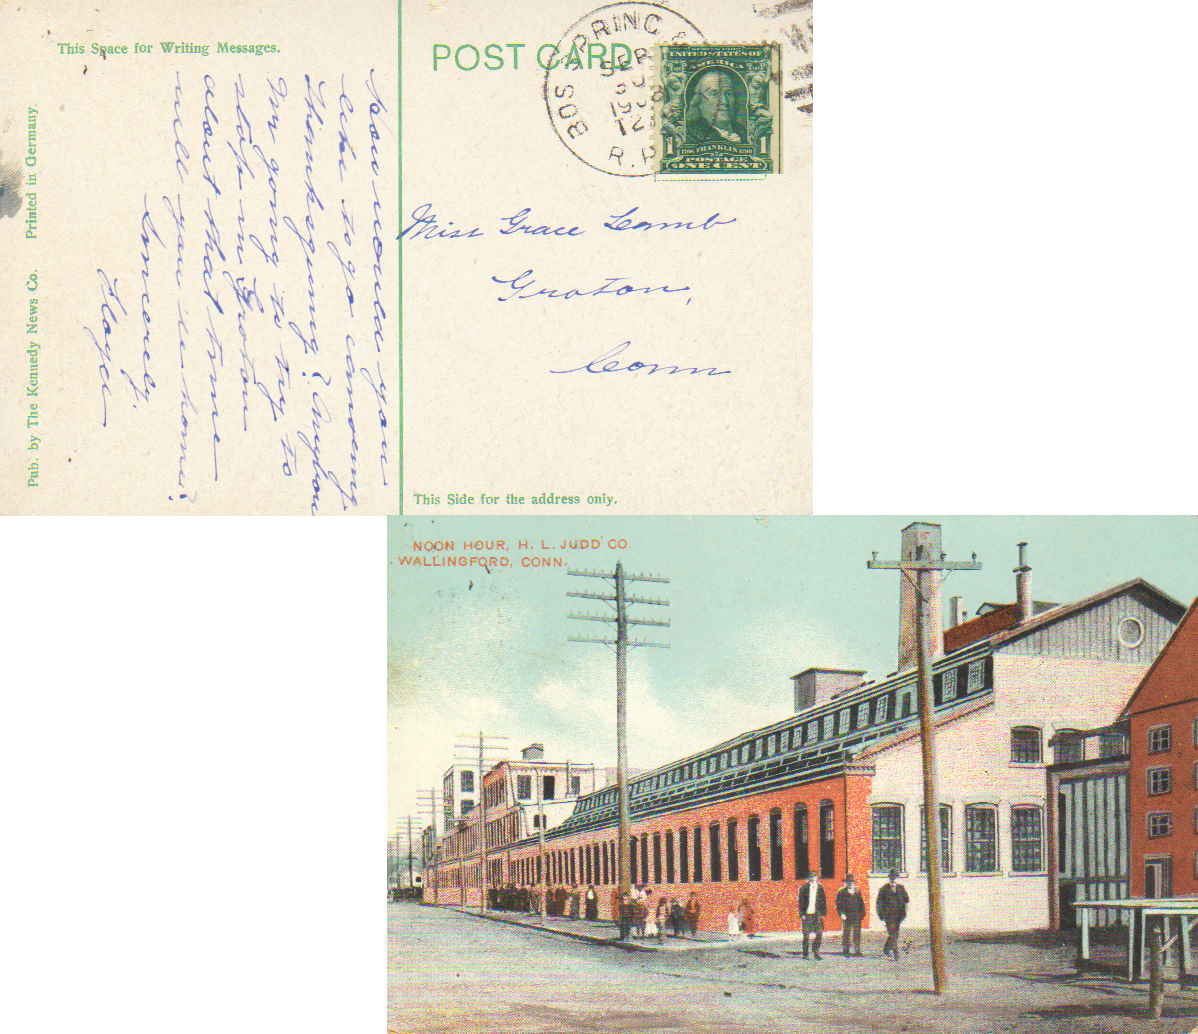 This Space for Writing Messages.
POST CARD
BOS SPRING &
SEP
R.P
UNITED STATES OF
AMERICA
1 FRANKLIN 1
POSTAGE
ONE CENT
How would you
like to go canoeing
Thanksgiving?
I'm going to try to
stop in Groton
about that time
will you be home?
Sincerely,
Miss Grace Lamb
Groton,
Conn
Pub. by The Kennedy News Co. Printed in Germany
This Side for the address only.
NOON HOUR, H. L. JUDD CO.
WALLINGFORD, CONN.